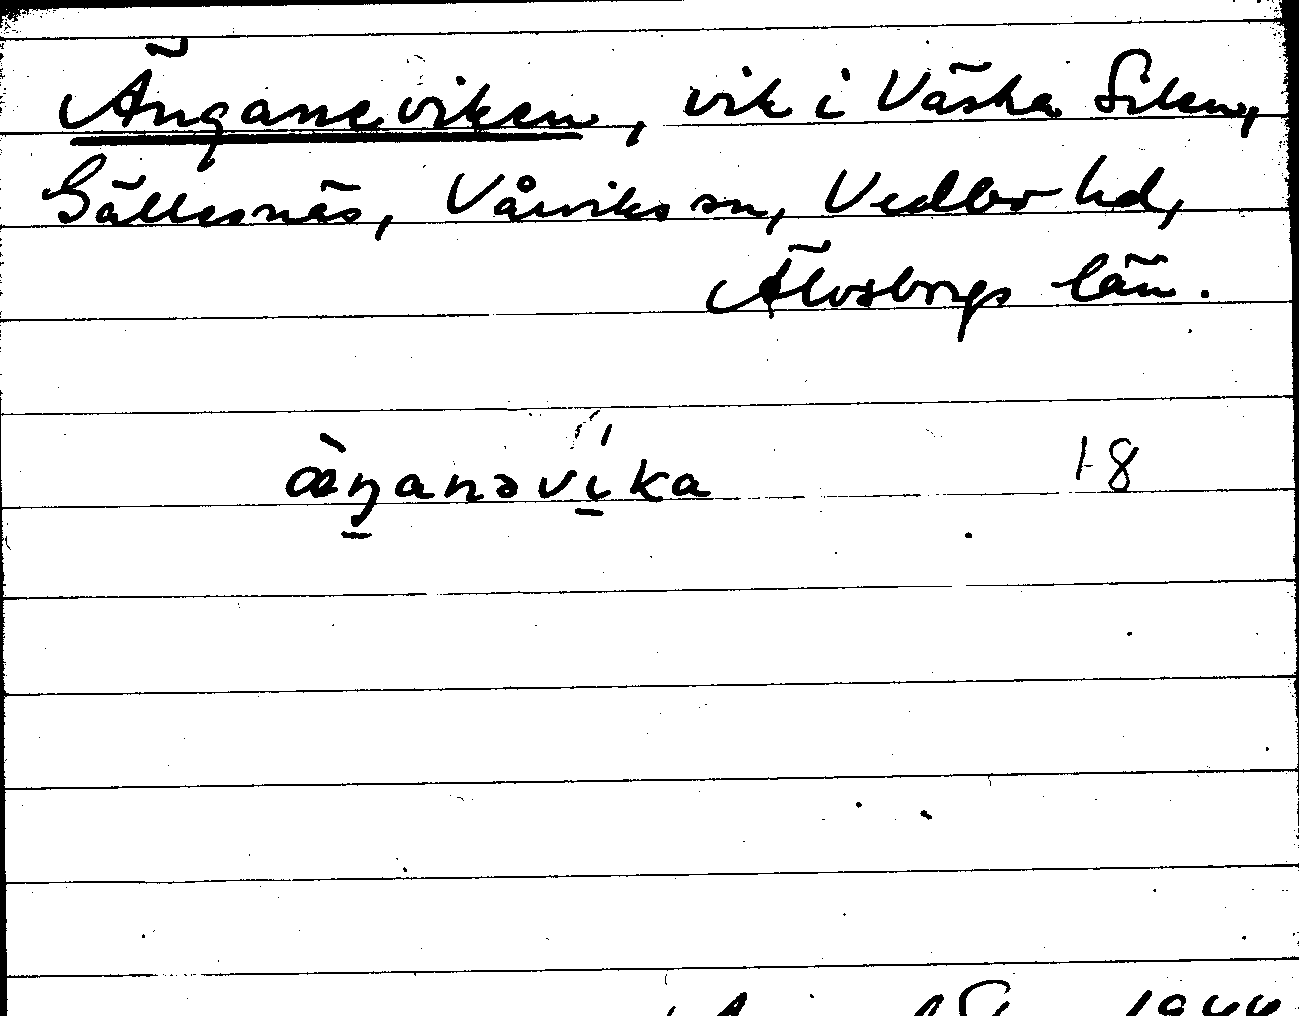 Änganeviken, vik i Västra Silen,
Gällesnäs, Vårviks sn, Vedbo hd,
Älvsborgs län.
æ̀ŋanəvíka 18
1944